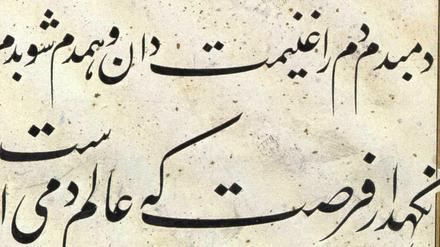 دمبدم دم را غنیمت دان و همدم شو بدم
نگهدار فرصت که عالم دمی است